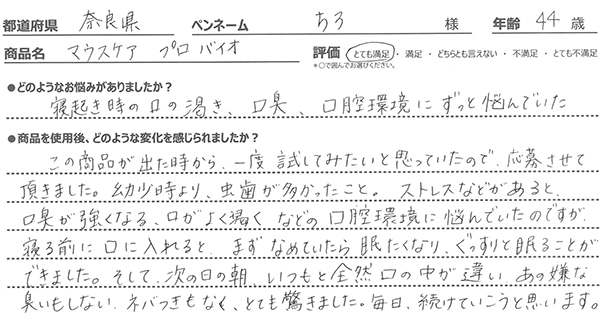 都道府県 奈良県 ペンネーム ちろ 様 年齢 44 歳
商品名 マウスケア プロ バイオ 評価 とても満足・満足・どちらとも言えない・不満足・とても不満足
*○で囲んでお選びください。
●どのようなお悩みがありましたか?
寝起き時の口の渇き、口臭、口腔環境にずっと悩んでいた
●商品を使用後、どのような変化を感じられましたか?
この商品が出た時から、一度試してみたいと思っていたので、応募させて
頂きました。幼少時より、虫歯が多かったこと。ストレスなどがあると、
口臭が強くなる、口がよく渇くなどの口腔環境に悩んでいたのですが、
寝る前に口に入れると、まずなめていたら眠たくなり、ぐっすりと眠ることが
できました。そして、次の日の朝、いつもと全然口の中が違い、あの嫌な
臭いもしない、ネバつきもなく、とても驚きました。毎日、続けていこうと思います。